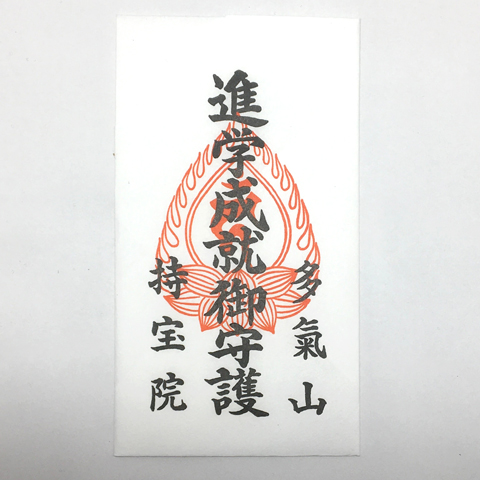 多氣山
進学成就御守護
持宝院